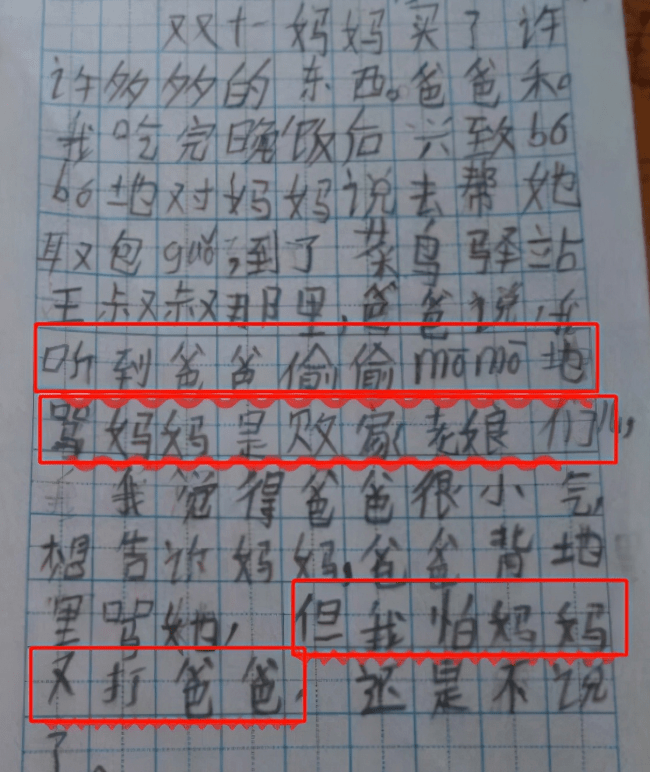 双双十一妈妈买了许
许多多的东西。爸爸和
我吃完晚饭后兴致bó
bó地对妈妈说去帮她
取包guǒ,到了菜鸟驿站
王叔叔那里,爸爸说,我
听到爸爸偷偷mōmō地
骂妈妈是败家老娘们儿,
我觉得爸爸很小气,
想告诉妈妈,爸爸背地
里骂她,但我怕妈妈
又打爸爸,还是不说
了。